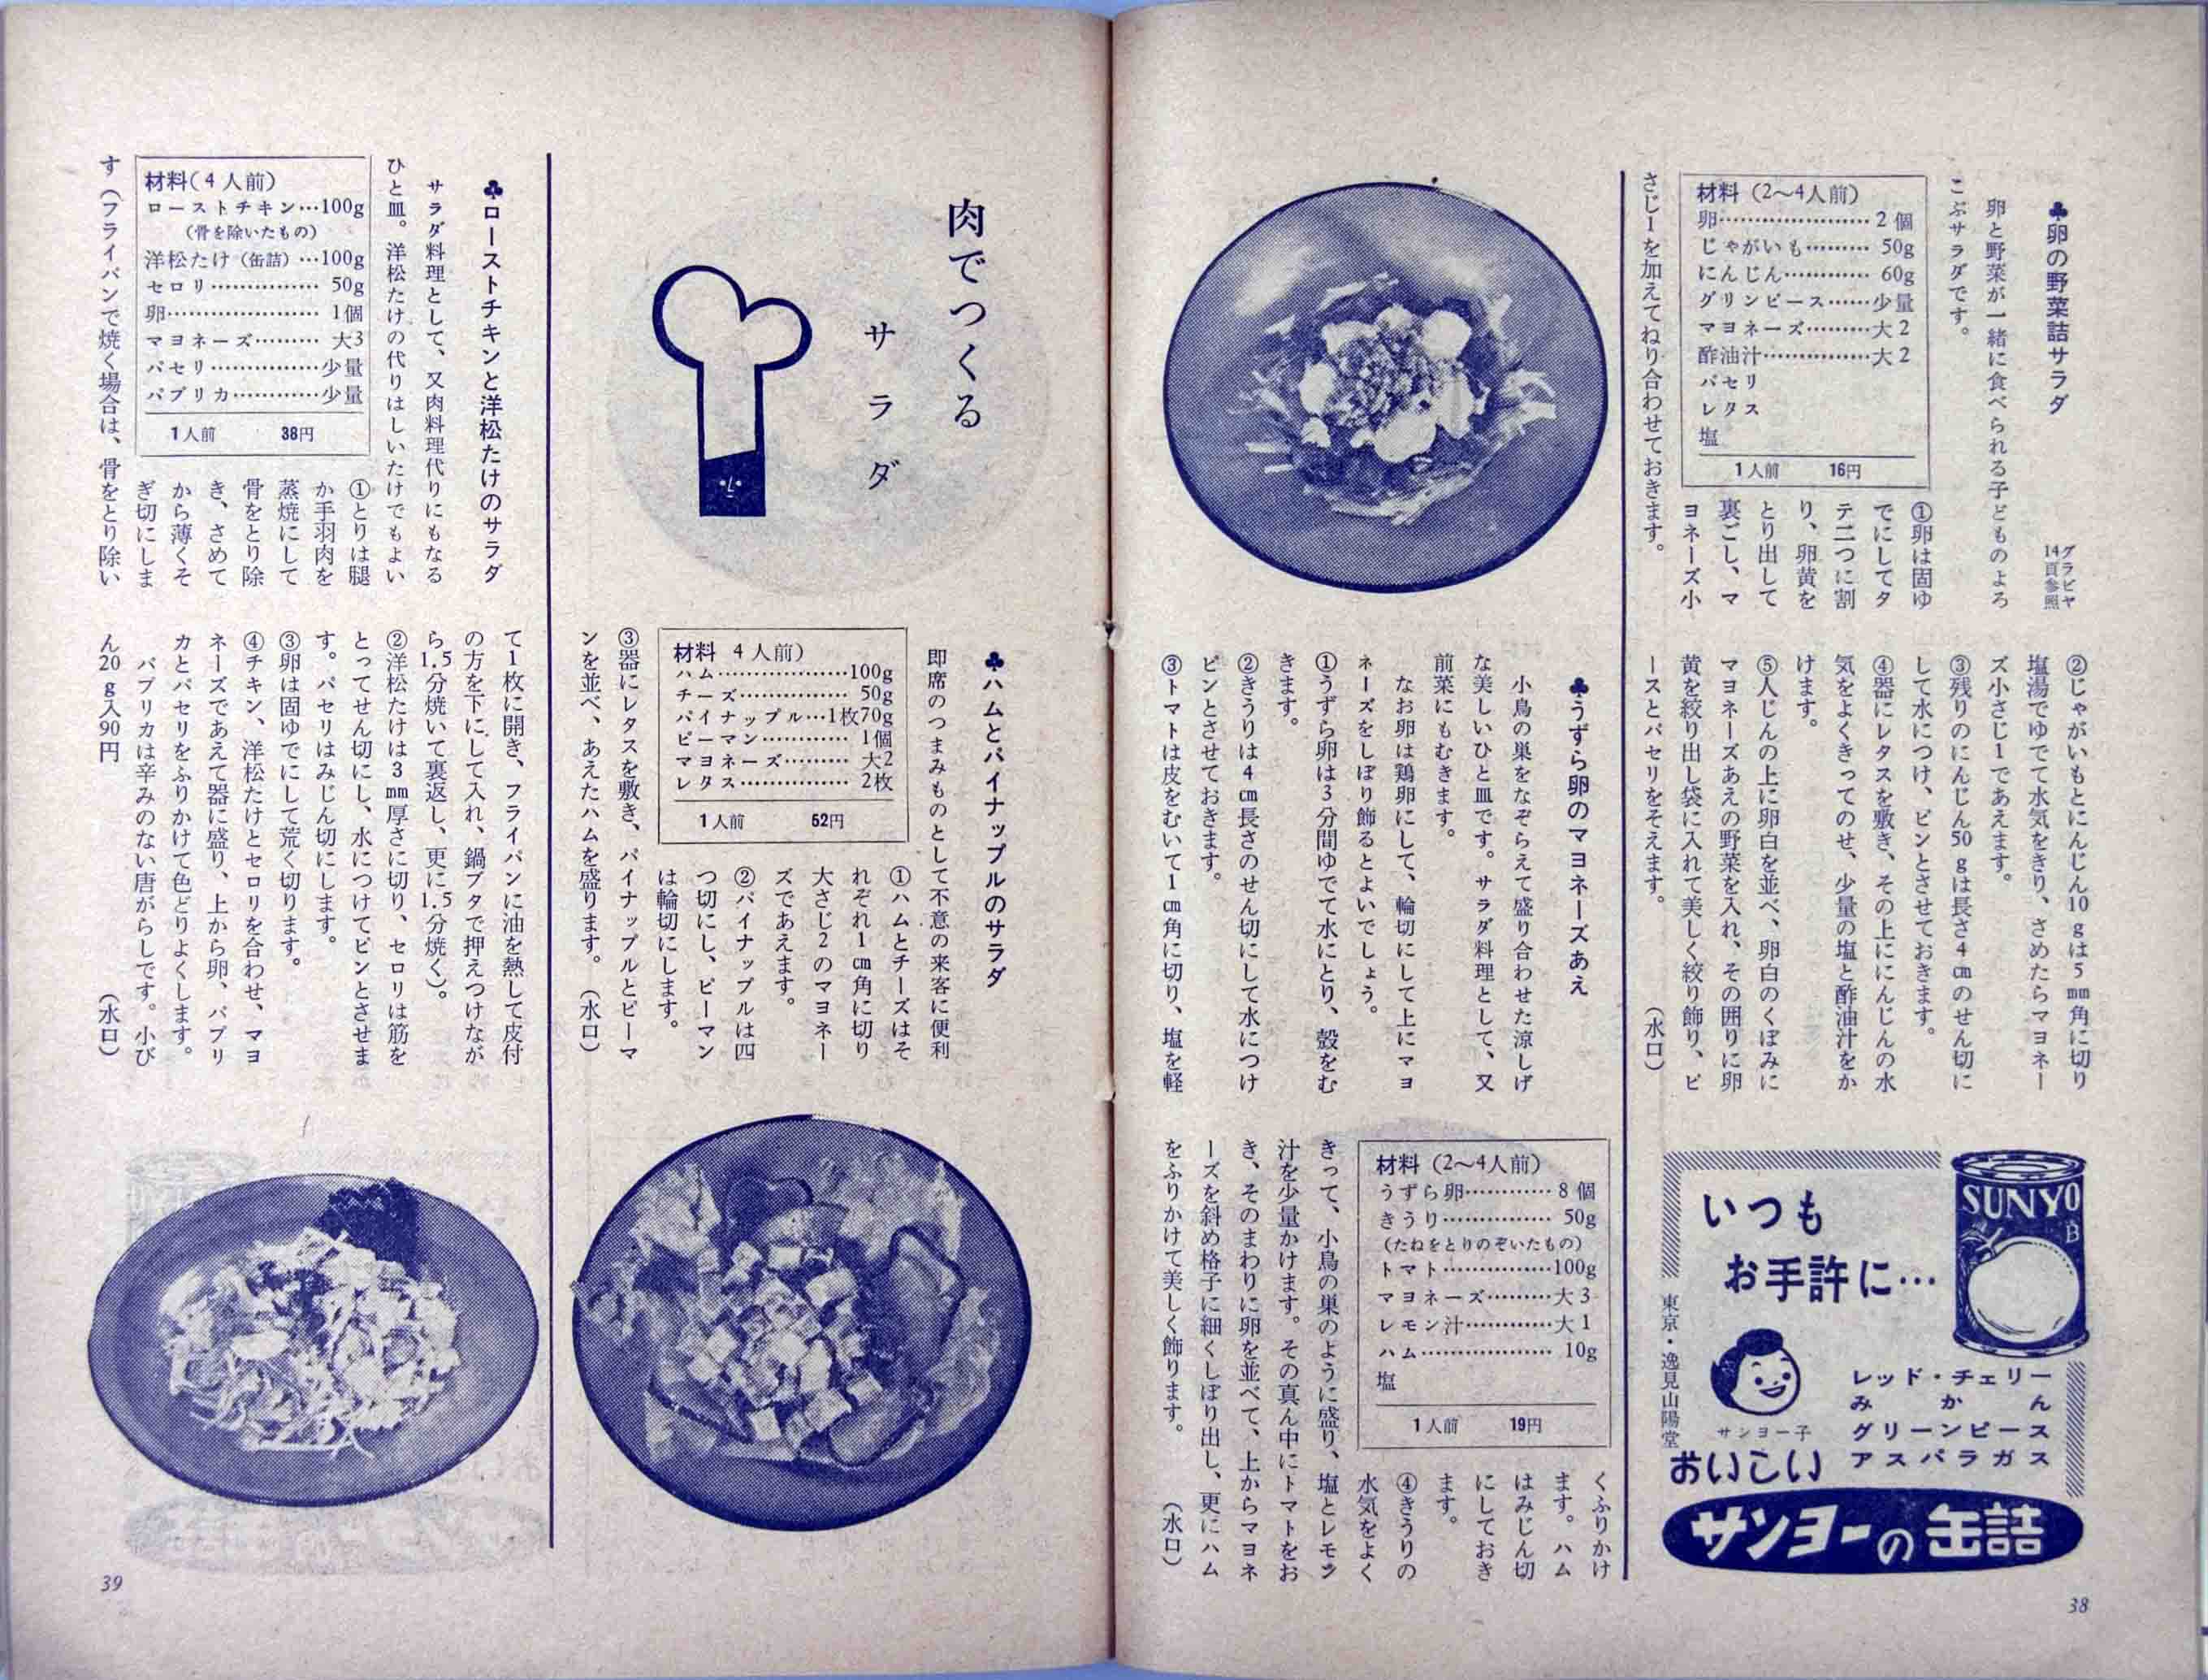 ♣卵の野菜詰サラダ
グラビヤ
14頁参照
卵と野菜が一緒に食べられる子どものよろ
こぶサラダです。
材料（2〜4人前）
卵…………………2個
じゃがいも………50g
にんじん…………60g
グリンピース……少量
マヨネーズ………大2
酢油汁……………大2
パセリ
レタス
塩
1人前　16円
①卵は固ゆ
でにしてタ
テ二つに割
り、卵黄を
とり出して
裏ごし、マ
ヨネーズ小
さじ1を加えてねり合わせておきます。
②じゃがいもとにんじん10gは5㎜角に切り
塩湯でゆでて水気をきり、さめたらマヨネー
ズ小さじ1であえます。
③残りのにんじん50gは長さ4㎝のせん切に
して水につけ、ピンとさせておきます。
④器にレタスを敷き、その上ににんじんの水
気をよくきってのせ、少量の塩と酢油汁をか
けます。
⑤人じんの上に卵白を並べ、卵白のくぼみに
マヨネーズあえの野菜を入れ、その囲りに卵
黄を絞り出し袋に入れて美しく絞り飾り、ピ
ースとパセリをそえます。（水口）
SUNYO
B
いつも
お手許に…
サンヨー子
レッド・チェリー
みかん
グリーンピース
アスパラガス
東京・逸見山陽堂
おいしい
サンヨーの缶詰
♣うずら卵のマヨネーズあえ
小鳥の巣をなぞらえて盛り合わせた涼しげ
な美しいひと皿です。サラダ料理として、又
前菜にもむきます。
なお卵は鶏卵にして、輪切にして上にマヨ
ネーズをしぼり飾るとよいでしょう。
①うずら卵は3分間ゆでて水にとり、殻をむ
きます。
②きうりは4㎝長さのせん切にして水につけ
ピンとさせておきます。
③トマトは皮をむいて1㎝角に切り、塩を軽
材料（2〜4人前）
うずら卵…………8個
きうり……………50g
（たねをとりのぞいたもの）
トマト……………100g
マヨネーズ………大3
レモン汁…………大1
ハム………………10g
塩
1人前　19円
くふりかけ
ます。ハム
はみじん切
にしておき
ます。
④きうりの
水気をよく
きって、小鳥の巣のように盛り、塩とレモン
汁を少量かけます。その真ん中にトマトをお
き、そのまわりに卵を並べて、上からマヨネ
ーズを斜め格子に細くしぼり出し、更にハム
をふりかけて美しく飾ります。（水口）
38
肉でつくる
サラダ
♣ハムとパイナップルのサラダ
即席のつまみものとして不意の来客に便利
材料　4人前）
ハム………………100g
チーズ……………50g
パイナップル…1枚70g
ピーマン…………1個
マヨネーズ………大2
レタス……………2枚
1人前　52円
①ハムとチーズはそ
れぞれ1㎝角に切り
大さじ2のマヨネー
ズであえます。
②パイナップルは四
つ切にし、ピーマン
は輪切にします。
③器にレタスを敷き、パイナップルとピーマ
ンを並べ、あえたハムを盛ります。（水口）
♣ローストチキンと洋松たけのサラダ
サラダ料理として、又肉料理代りにもなる
ひと皿。洋松たけの代りはしいたけでもよい
材料（4人前）
ローストチキン…100g
（骨を除いたもの）
洋松たけ（缶詰）…100g
セロリ……………50g
卵…………………1個
マヨネーズ………大3
パセリ……………少量
パプリカ…………少量
1人前　38円
①とりは腿
か手羽肉を
蒸焼にして
骨をとり除
き、さめて
から薄くそ
ぎ切にしま
す（フライパンで焼く場合は、骨をとり除い
て1枚に開き、フライパンに油を熱して皮付
の方を下にして入れ、鍋ブタで押えつけなが
ら1.5分焼いて裏返し、更に1.5分焼く）。
②洋松たけは3㎜厚さに切り、セロリは筋を
とってせん切にし、水につけてピンとさせま
す。パセリはみじん切にします。
③卵は固ゆでにして荒く切ります。
④チキン、洋松たけとセロリを合わせ、マヨ
ネーズであえて器に盛り、上から卵、パプリ
カとパセリをふりかけて色どりよくします。
パプリカは辛みのない唐がらしです。小び
ん20g入90円（水口）
39